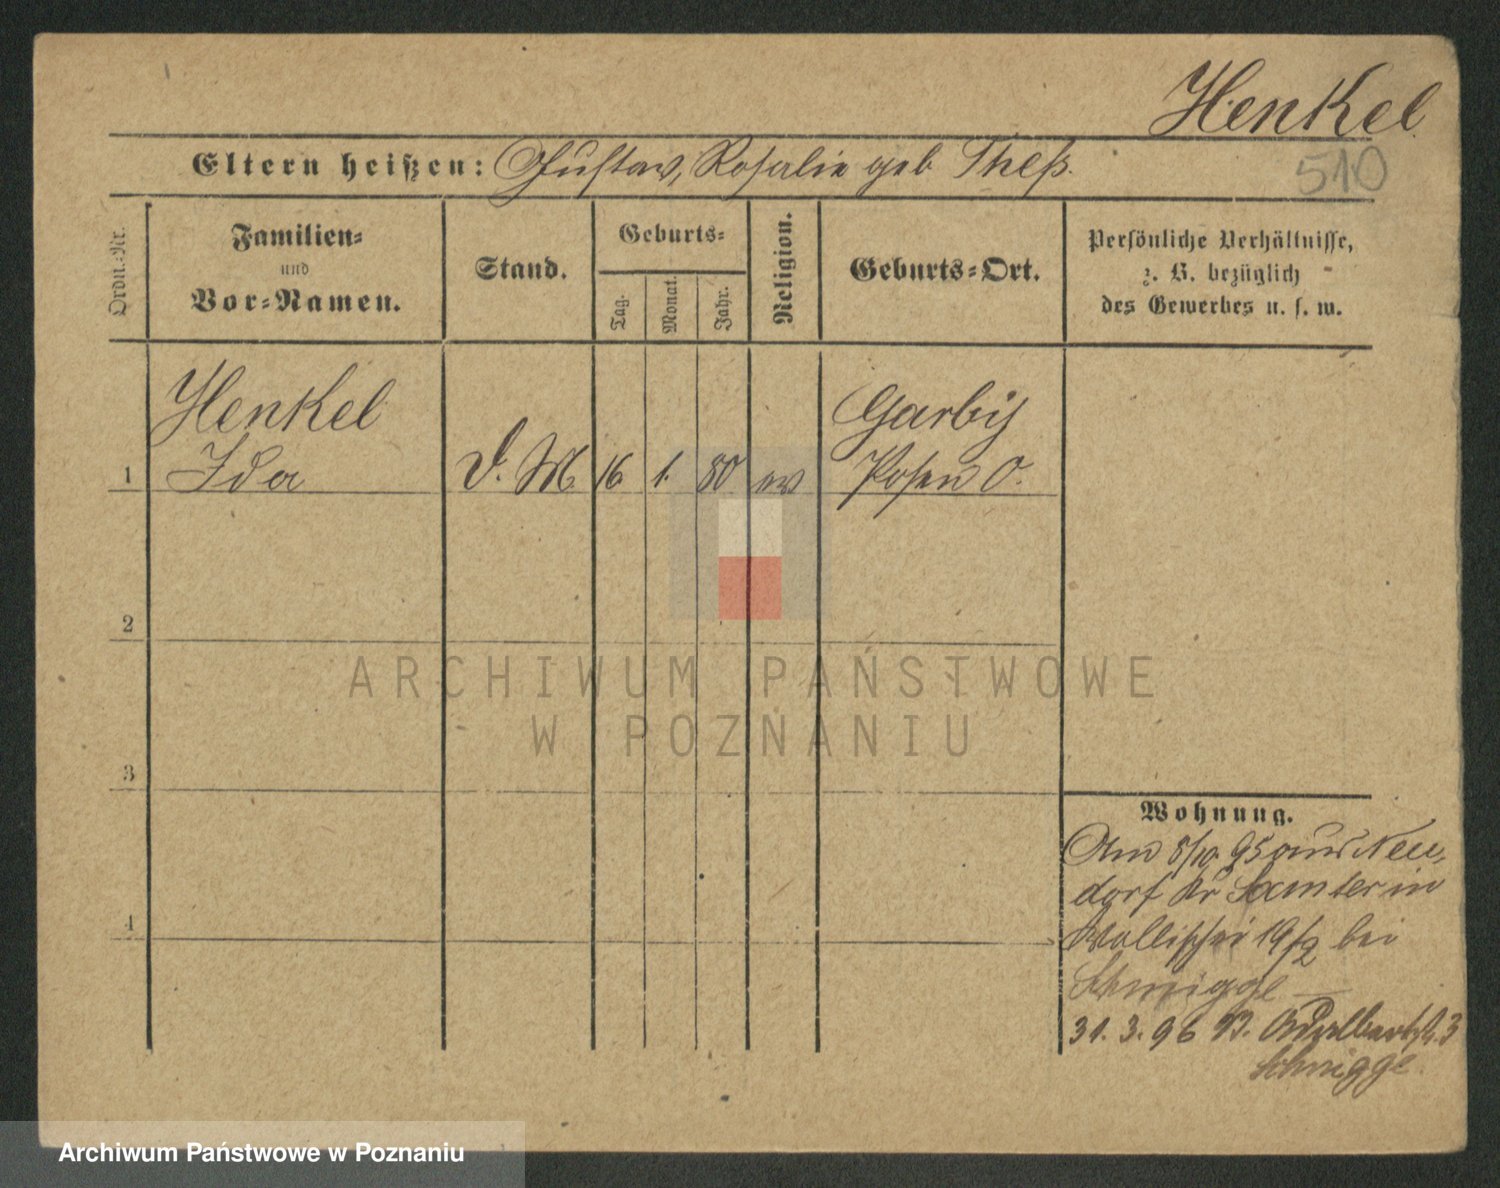 Henkel
510
Eltern heißen: Gustav, Rosalie geb Theß.
Ordn.-Nr.
Familien-
und
Vor-Namen.
Stand.
Geburts-
Tag.
Monat.
Jahr.
Religion.
Geburts-Ort.
Persönliche Verhältnisse,
z. B. bezüglich
des Gewerbes u. s. w.
Henkel
Ida
1
D. M. 16. 1. 80 ev
Garby
Posen O.
2
3
4
Wohnung.
Am 8/10. 95 aus Neu-
dorf Kr Samter in
Wallischei 19/2 bei
Schmigge
31. 3. 96 Adalbertst. 3
Schmigge
ARCHIWUM PAŃSTWOWE
W POZNANIU
Archiwum Państwowe w Poznaniu